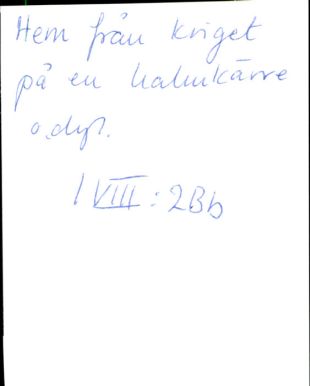 Hem från kriget
på en halmkärre
o.dyl.
I VIII : 2Bb